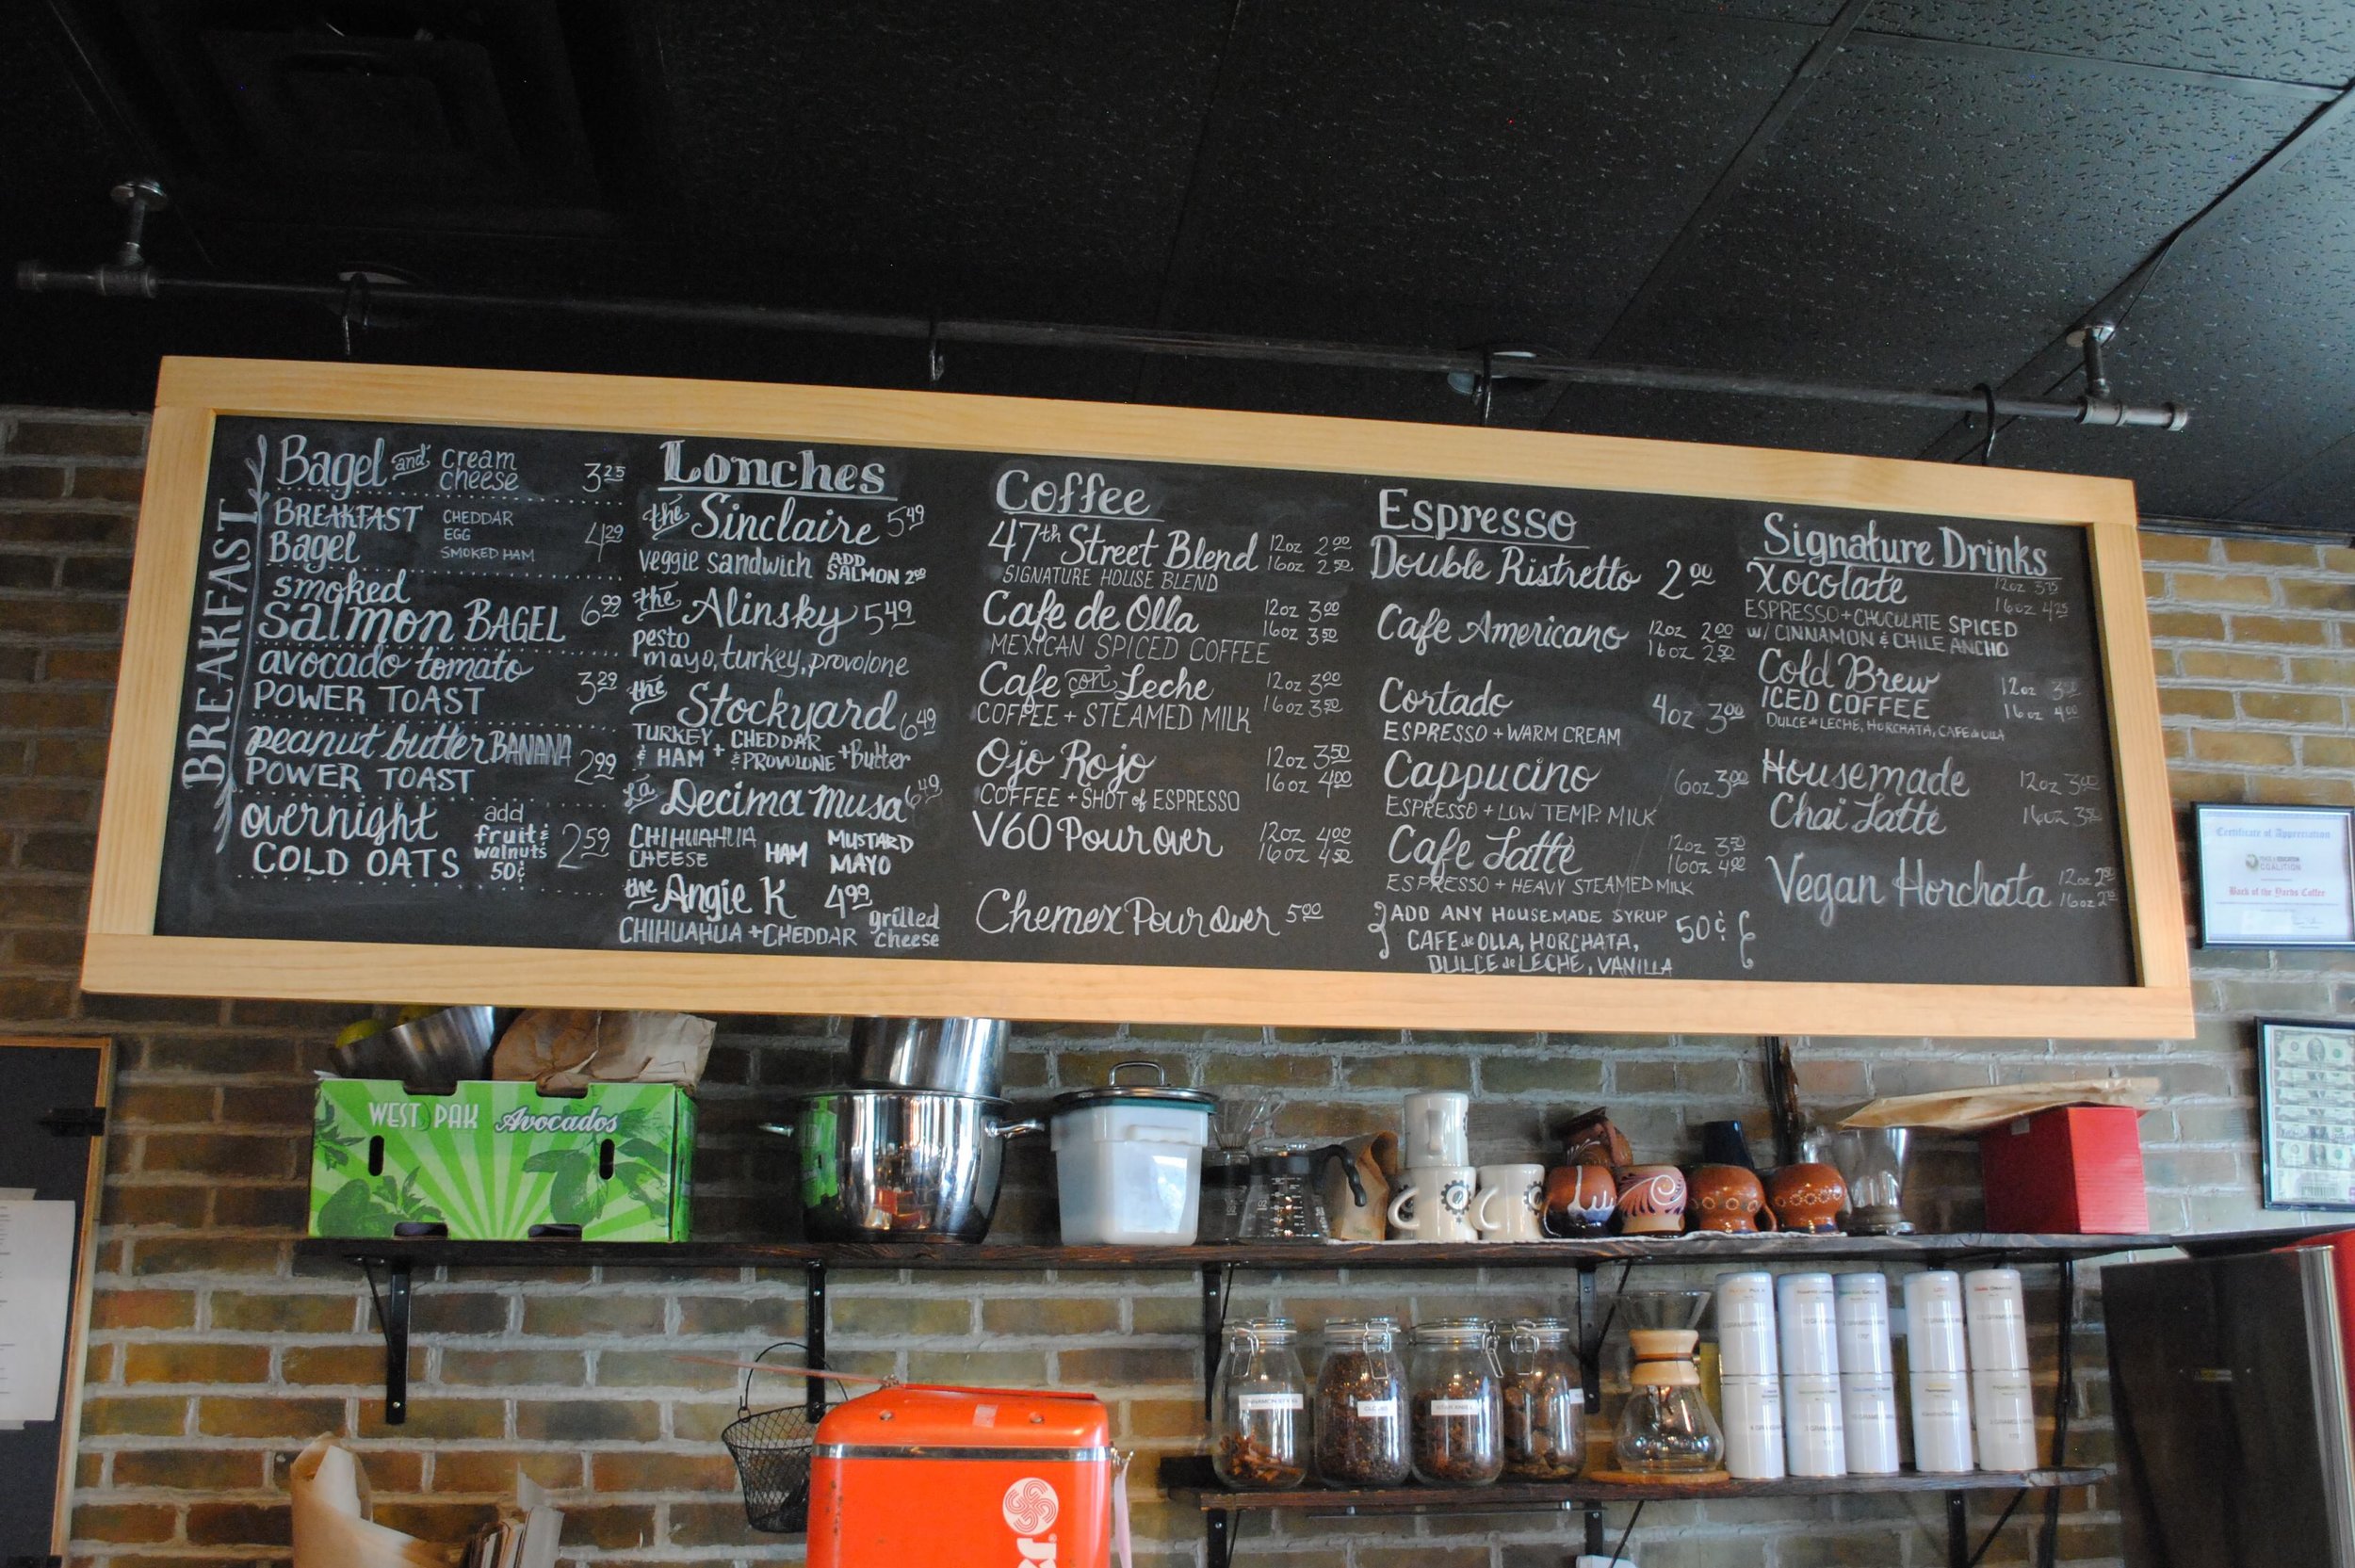 BREAKFAST
Bagel and cream cheese 3.25
BREAKFAST Bagel
CHEDDAR
EGG
SMOKED HAM
4.29
smoked
salmon BAGEL 6.99
avocado tomato
POWER TOAST 3.29
peanut butter BANANA
POWER TOAST 2.99
overnight
COLD OATS
add
fruit &
walnuts
50¢
2.59
Lonches
the Sinclaire 5.49
veggie sandwich ADD SALMON 2.00
the Alinsky 5.49
pesto
mayo, turkey, provolone
the Stockyard 6.49
TURKEY, CHEDDAR
& HAM + & PROVOLONE + Butter
La Decima Musa 6.49
CHIHUAHUA CHEESE HAM MUSTARD MAYO
the Angie K 4.99
CHIHUAHUA + CHEDDAR grilled cheese
Coffee
47th Street Blend 12oz 2.00
16oz 2.50
SIGNATURE HOUSE BLEND
Cafe de Olla 12oz 3.00
16oz 3.50
MEXICAN SPICED COFFEE
Cafe con Leche 12oz 3.00
16oz 3.50
COFFEE + STEAMED MILK
Ojo Rojo 12oz 3.50
16oz 4.00
COFFEE + SHOT of ESPRESSO
V60 Pour over 12oz 4.00
16oz 4.50
Chemex Pour over 5.00
Espresso
Double Ristretto 2.00
Cafe Americano 12oz 2.00
16oz 2.50
Cortado 4oz 3.00
ESPRESSO + WARM CREAM
Cappucino 6oz 3.00
ESPRESSO + LOW TEMP. MILK
Cafe Latte 12oz 3.50
16oz 4.00
ESPRESSO + HEAVY STEAMED MILK
ADD ANY HOUSEMADE SYRUP 50¢
CAFE de OLLA, HORCHATA,
DULCE de LECHE, VANILLA
Signature Drinks
Xocolate 12oz 3.75
16oz 4.25
ESPRESSO + CHOCOLATE SPICED
W/ CINNAMON & CHILE ANCHO
Cold Brew 12oz
ICED COFFEE 16oz 4.00
DULCE de LECHE, HORCHATA, CAFE de OLLA
Housemade 12oz
Chai Latte 16oz
Vegan Horchata 12oz
16oz
Certificate of Appreciation
COALITION
Back of the Yards Coffee
WEST PAK Avocados